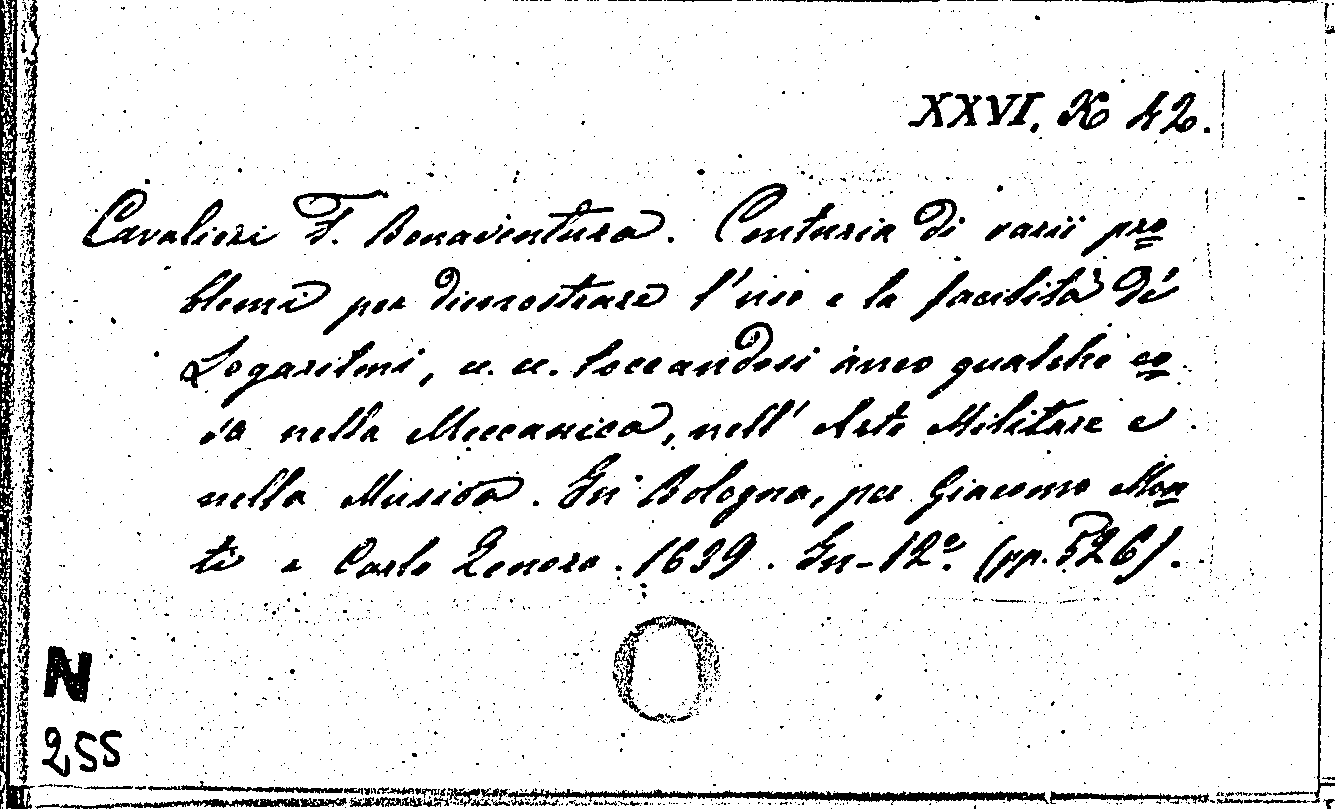 XXVI. K 42.
Cavalieri F. Bonaventura. Centuria di varii pro
blemi per dimostrare l'uso e la facilità dé
Logaritmi, ec. ec. toccandosi anco qualche co
sa nella Meccanica, nell' Arte Militare e
nella Musica. In Bologna, per Giacomo Mon
ti e Carlo Zenero. 1639. In-12º. (pp. 526).
N
255